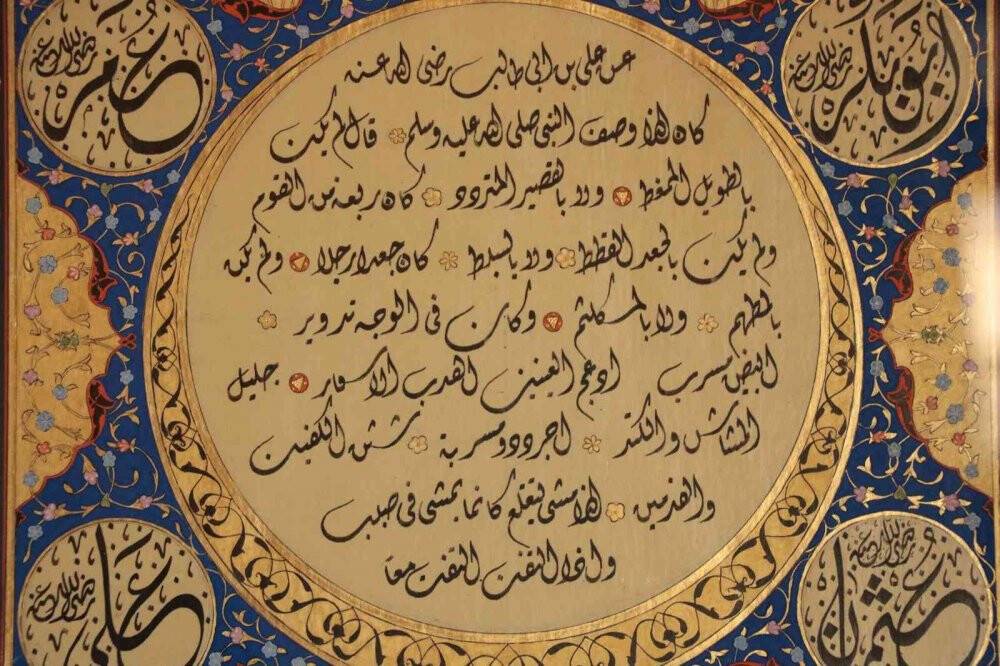 ابوبكر رضى الله عنه
عمر رضى الله عنه
عن على بن ابى طالب رضى الله عنه
كان اذا وصف النبى صلى الله عليه وسلم قال لم يكن
بالطويل الممغط ولا بالقصير المتردد كان ربعة من القوم
ولم يكن بالجعد القطط ولا بالسبط كان جعدا رجلا ولم يكن
بالمطهم ولا بالمكلثم وكان فى الوجه تدوير
ابيض مشرب ادعج العينين اهدب الاشفار جليل
المشاش والكتد اجرد ذو مسربة شثن الكفين
والقدمين اذا مشى يتقلع كانما يمشى فى صبب
واذا التفت التفت معا
عثمان رضى الله عنه
على رضى الله عنه